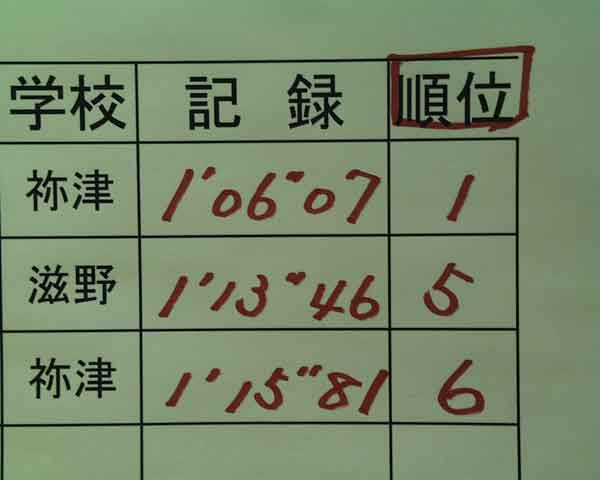 学校 記録 順位
祢津 1'06"07 1
滋野 1'13"46 5
祢津 1'15"81 6